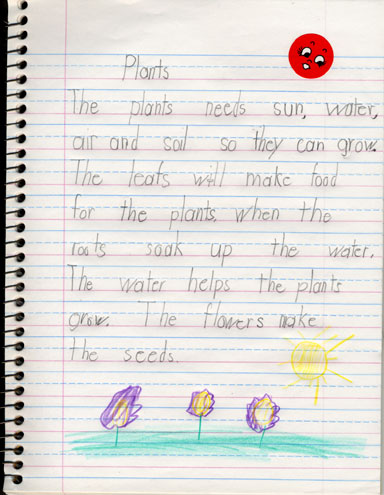 Plants
The plants needs sun, water,
air and soil so they can grow.
The leafs will make food
for the plants when the
roots soak up the water.
The water helps the plants
grow. The flowers make
the seeds.